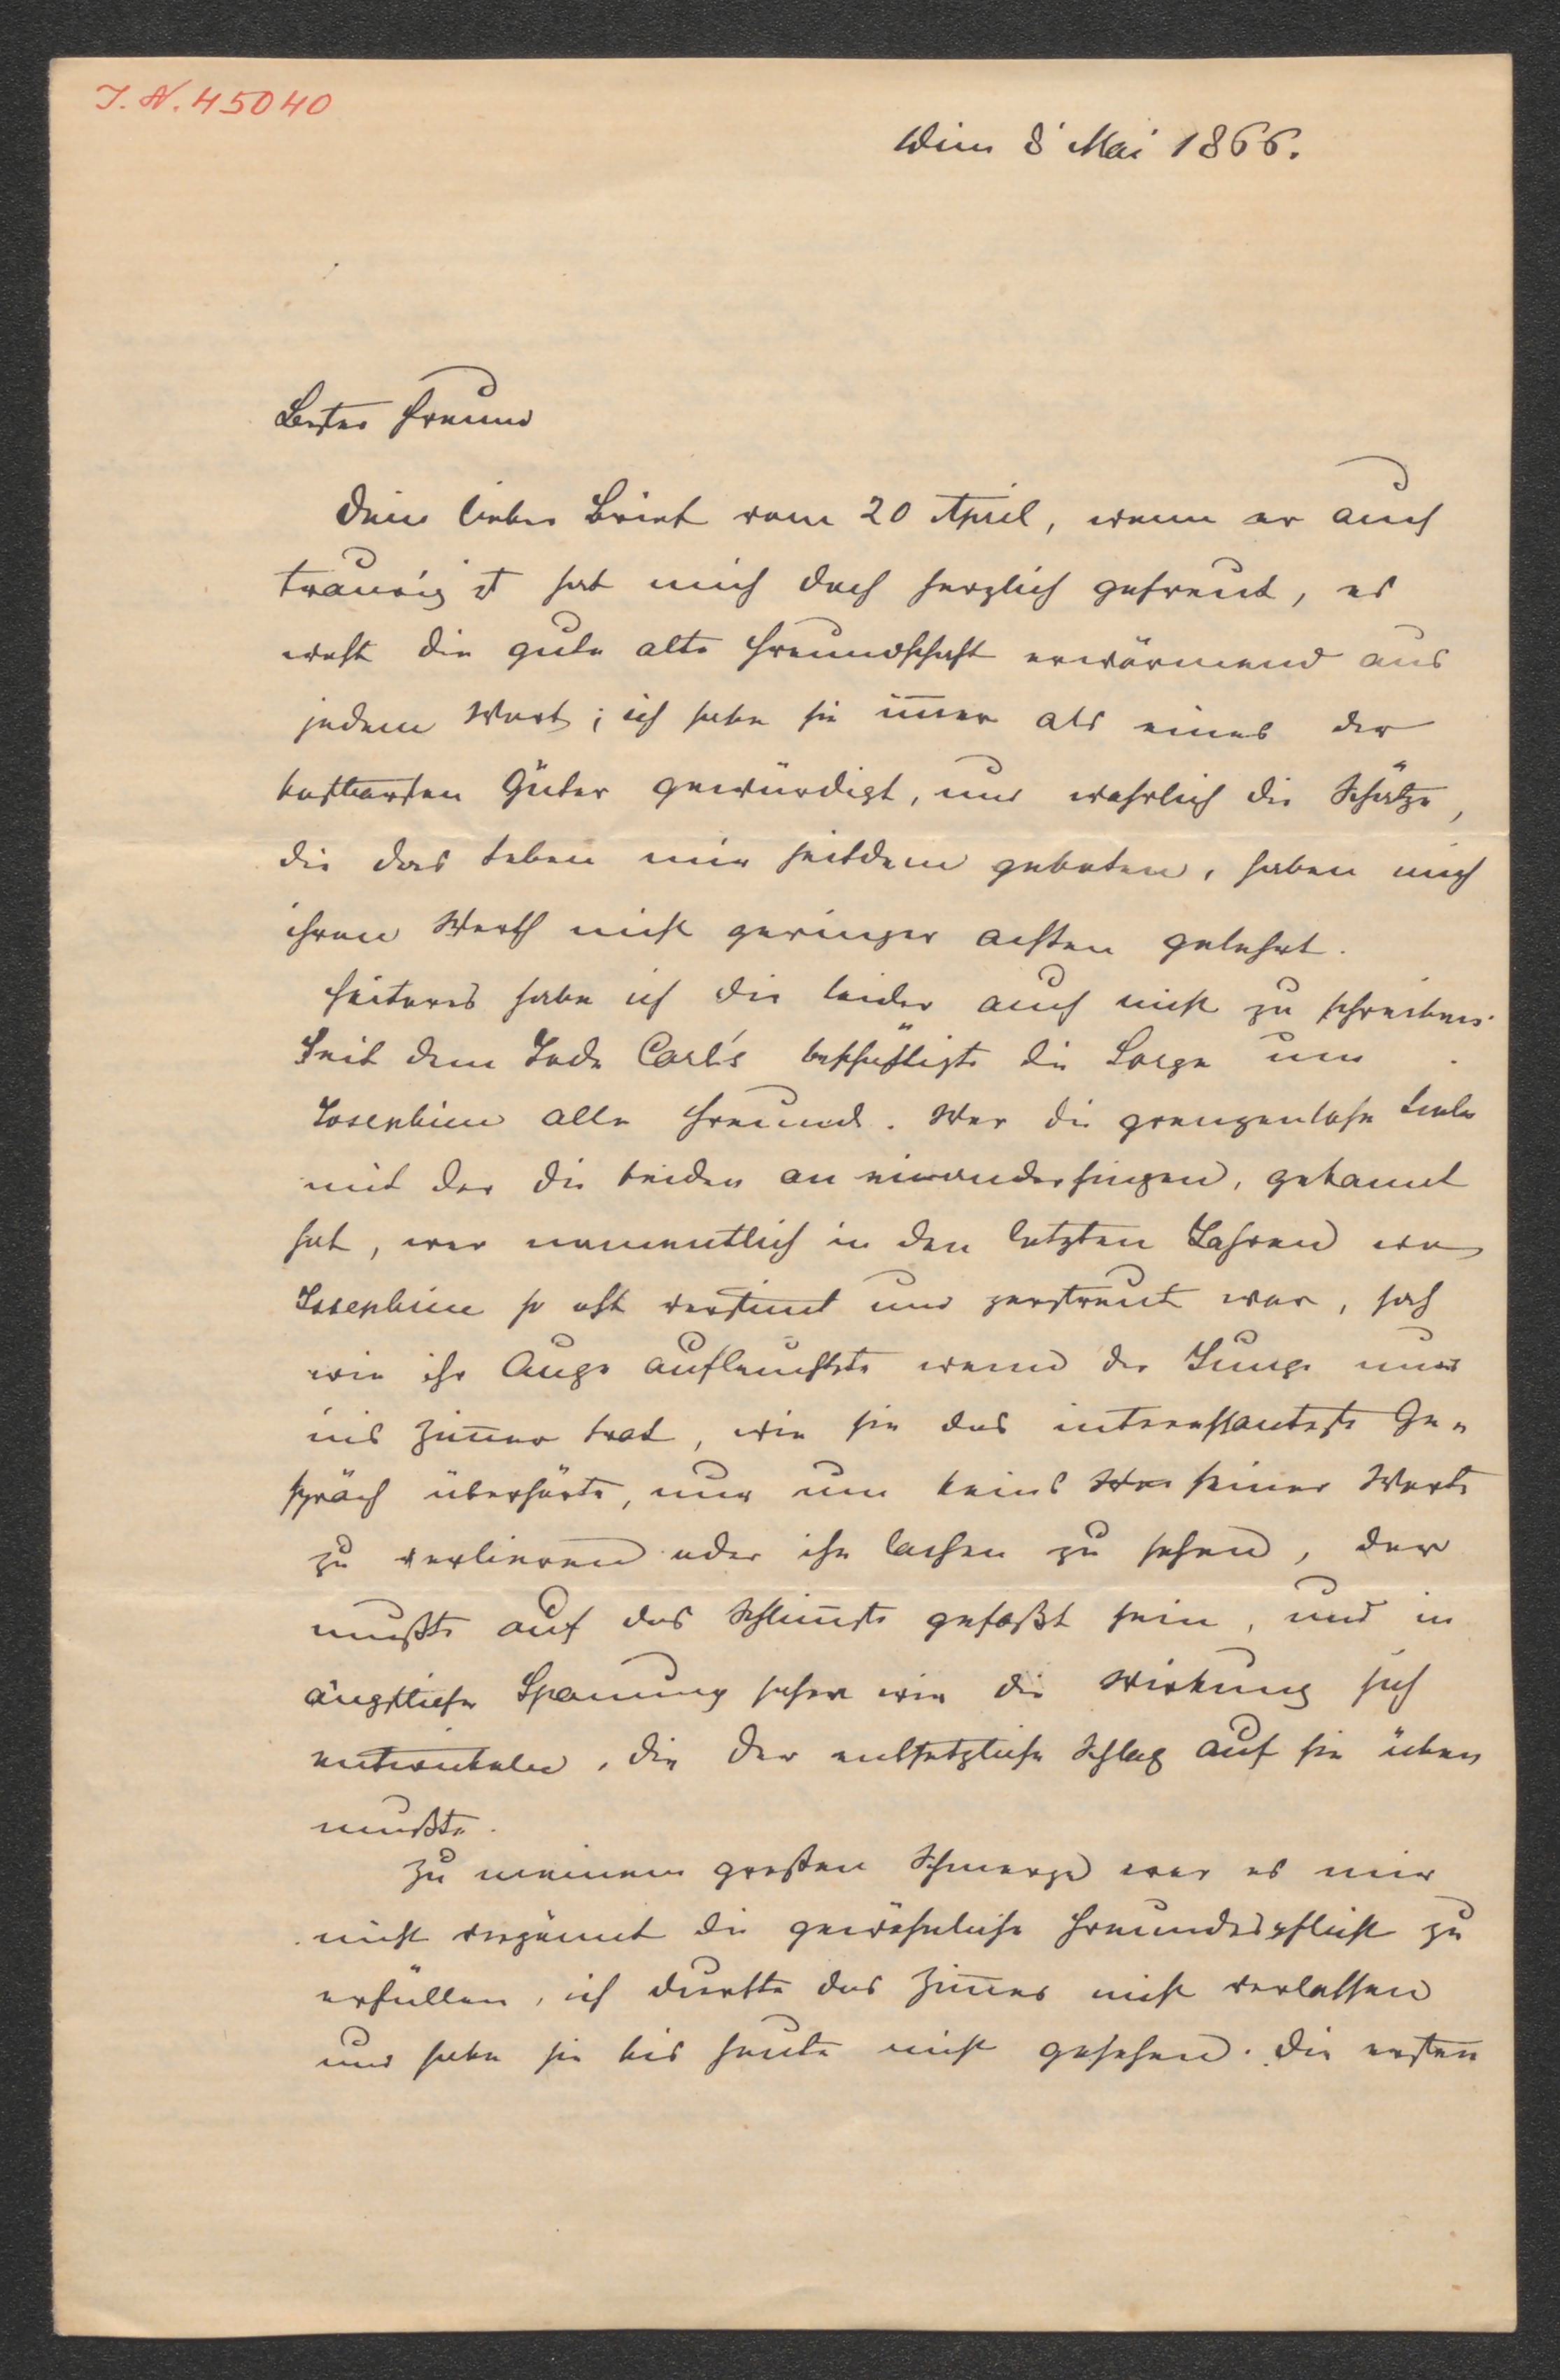 I. N. 45040
Wien 8' Mai 1866.
Bester Freund
Dein lieber Brief vom 20 April, wenn er auch
traurig ist hat mich doch herzlich gefreut, es
weht die gute alte Freundschaft erwärmend aus
jedem Wort; ich habe sie im̄er als eines der
kostbarsten Güter gewürdigt, und wahrlich die Schätze,
die das Leben mir seitdem geboten, haben mich
ihren Werth nicht geringer achten gelehrt.
Heiteres habe ich dir leider auch nicht zu schreiben.
Seit dem Tode Carl's beschäftigte die Sorge um
Josephine alle Freunde. Wer die grenzenlose Liebe
mit der die beiden an einander hingen, gekannt
hat, wer namentlich in den letzten Jahren wo
Josephine so oft verstimt und zerstreut war, sah
wie ihr Auge aufleuchtete wenn der Junge nur
ins Zim̄er trat, wie sie das interessanteste Ge-
spräch überhörte, nur um keins seiner Worte
zu verlieren oder ihn lachen zu sehen, der
mußte auf das Schlim̄ste gefaßt sein, und in
ängstlicher Spannung sehen wie die Wirkung sich
entwickeln, die der entsetzliche Schlag auf sie üben
mußte.
Zu meinem großen Schmerze war es mir
nicht vergönnt die gewöhnliche Freundespflicht zu
erfüllen, ich durfte das Zim̄er nicht verlassen
und habe sie bis heute nicht gesehen. Die ersten